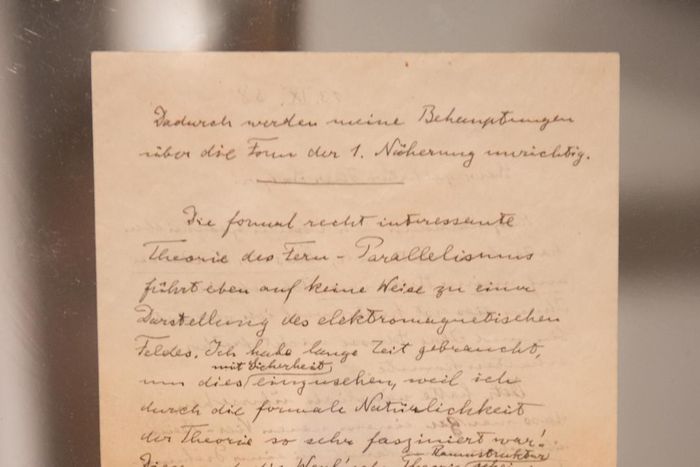 Dadurch werden meine Behauptungen
über die Form der 1. Näherung unrichtig.
Die formal recht interessante
Theorie des Fern-Parallelismus
führt eben auf keine Weise zu einer
Darstellung des elektromagnetischen
Feldes. Ich habe lange Zeit gebraucht,
mit Sicherheit
um dies einzusehen, weil ich
durch die formale Natürlichkeit
der Theorie so sehr fasziniert war!
Raumstruktur
die Weyl'sche Theorie